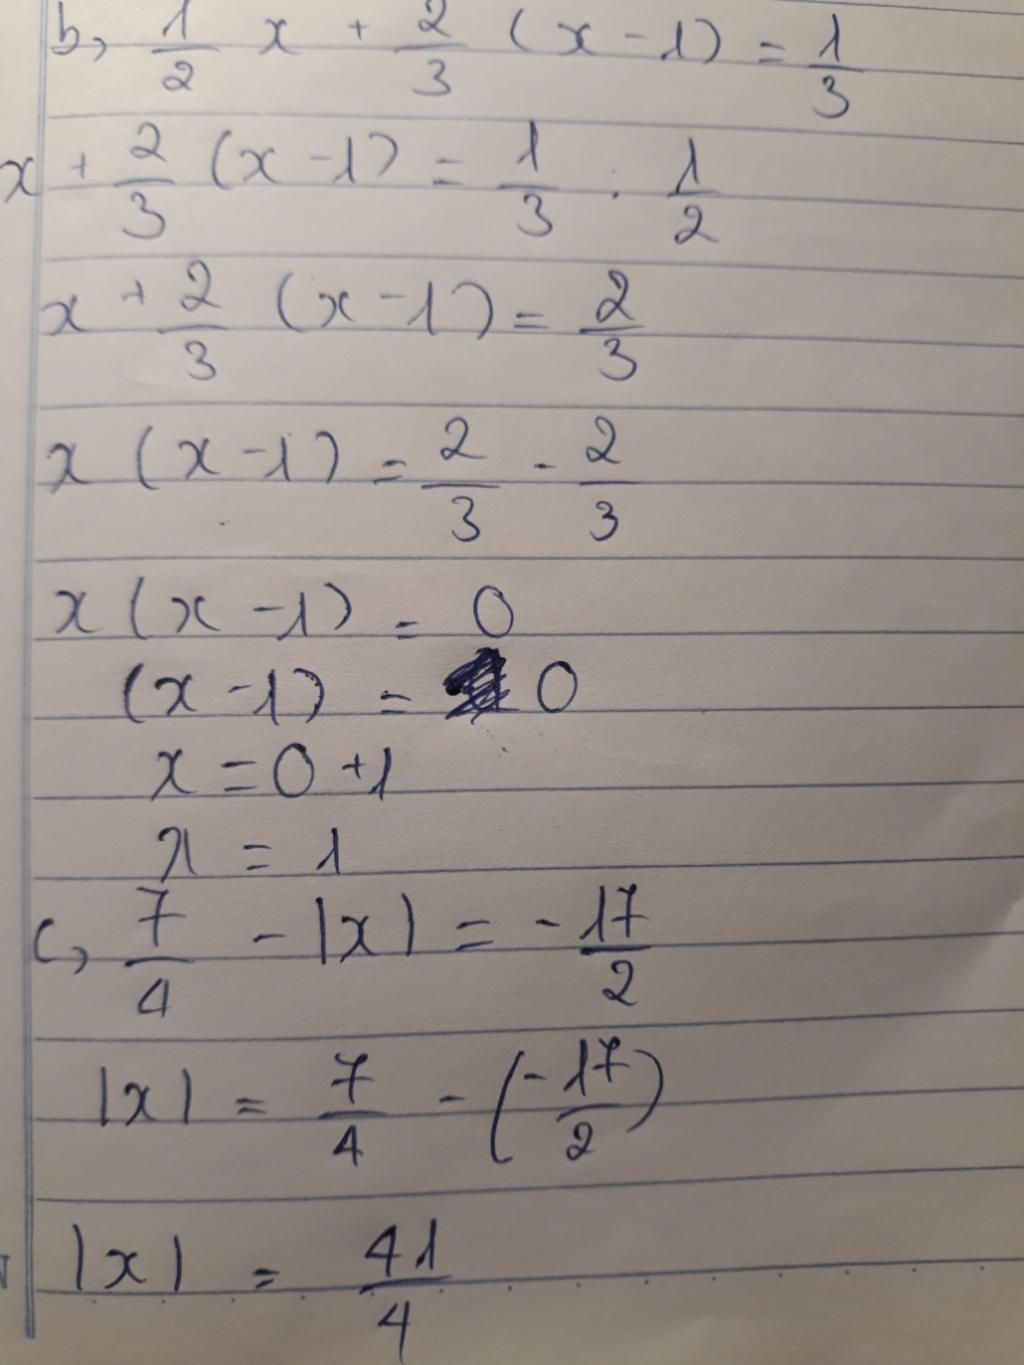 b, 1/2 x + 2/3 (x - 1) = 1/3
x + 2/3 (x - 1) = 1/3 : 1/2
x + 2/3 (x - 1) = 2/3
x (x - 1) = 2/3 - 2/3
x (x - 1) = 0
(x - 1) = 0
x = 0 + 1
x = 1
c, 7/4 - |x| = - 17/2
|x| = 7/4 - (- 17/2)
|x| = 41/4